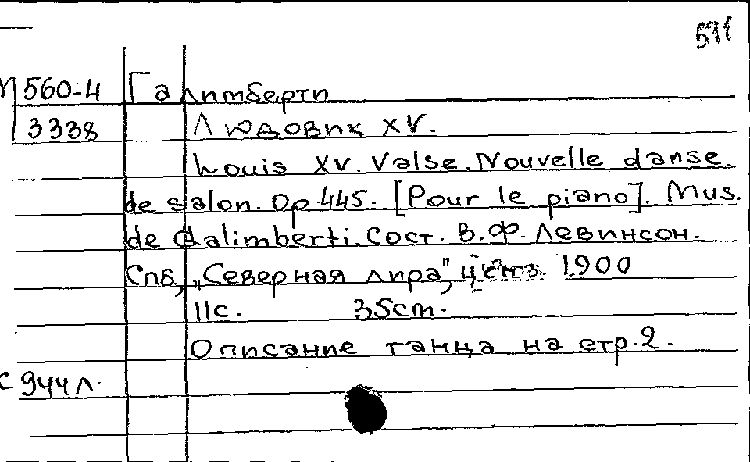 571
М 560-4 Галимберти
3338 Людовик XV.
Louis XV. Valse. Nouvelle danse
de salon. Op 445. [Pour le piano]. Mus.
de Galimberti. Сост. В.Ф. Левинсон.
Спб, „Северная лира", ценз. 1900
11с. 35cm.
Описание танца на стр. 2.
с 944 л.